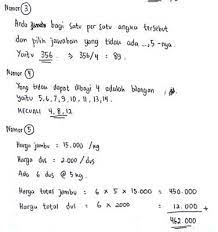 Nomor ③
Anda bagi satu per satu angka tersebut
dan pilih jawaban yang tidak ada ...,5 -nya.
Yaitu 356. ⇒ 356/4 = 89.
Nomor ④
Yang tidak dapat dibagi 4 adalah bilangan
Yaitu 5,6,7,9,10,11,13,14.
KECUALI 4,8,12
Nomor ⑤
Harga jambu = 15.000 /kg
Harga dus = 2.000 / dus
Ada 6 dus @ 5 kg.
Harga total jambu = 6 x 5 x 15.000 = 450.000
Harga total dus = 6 x 2000 = 12.000 +
462.000